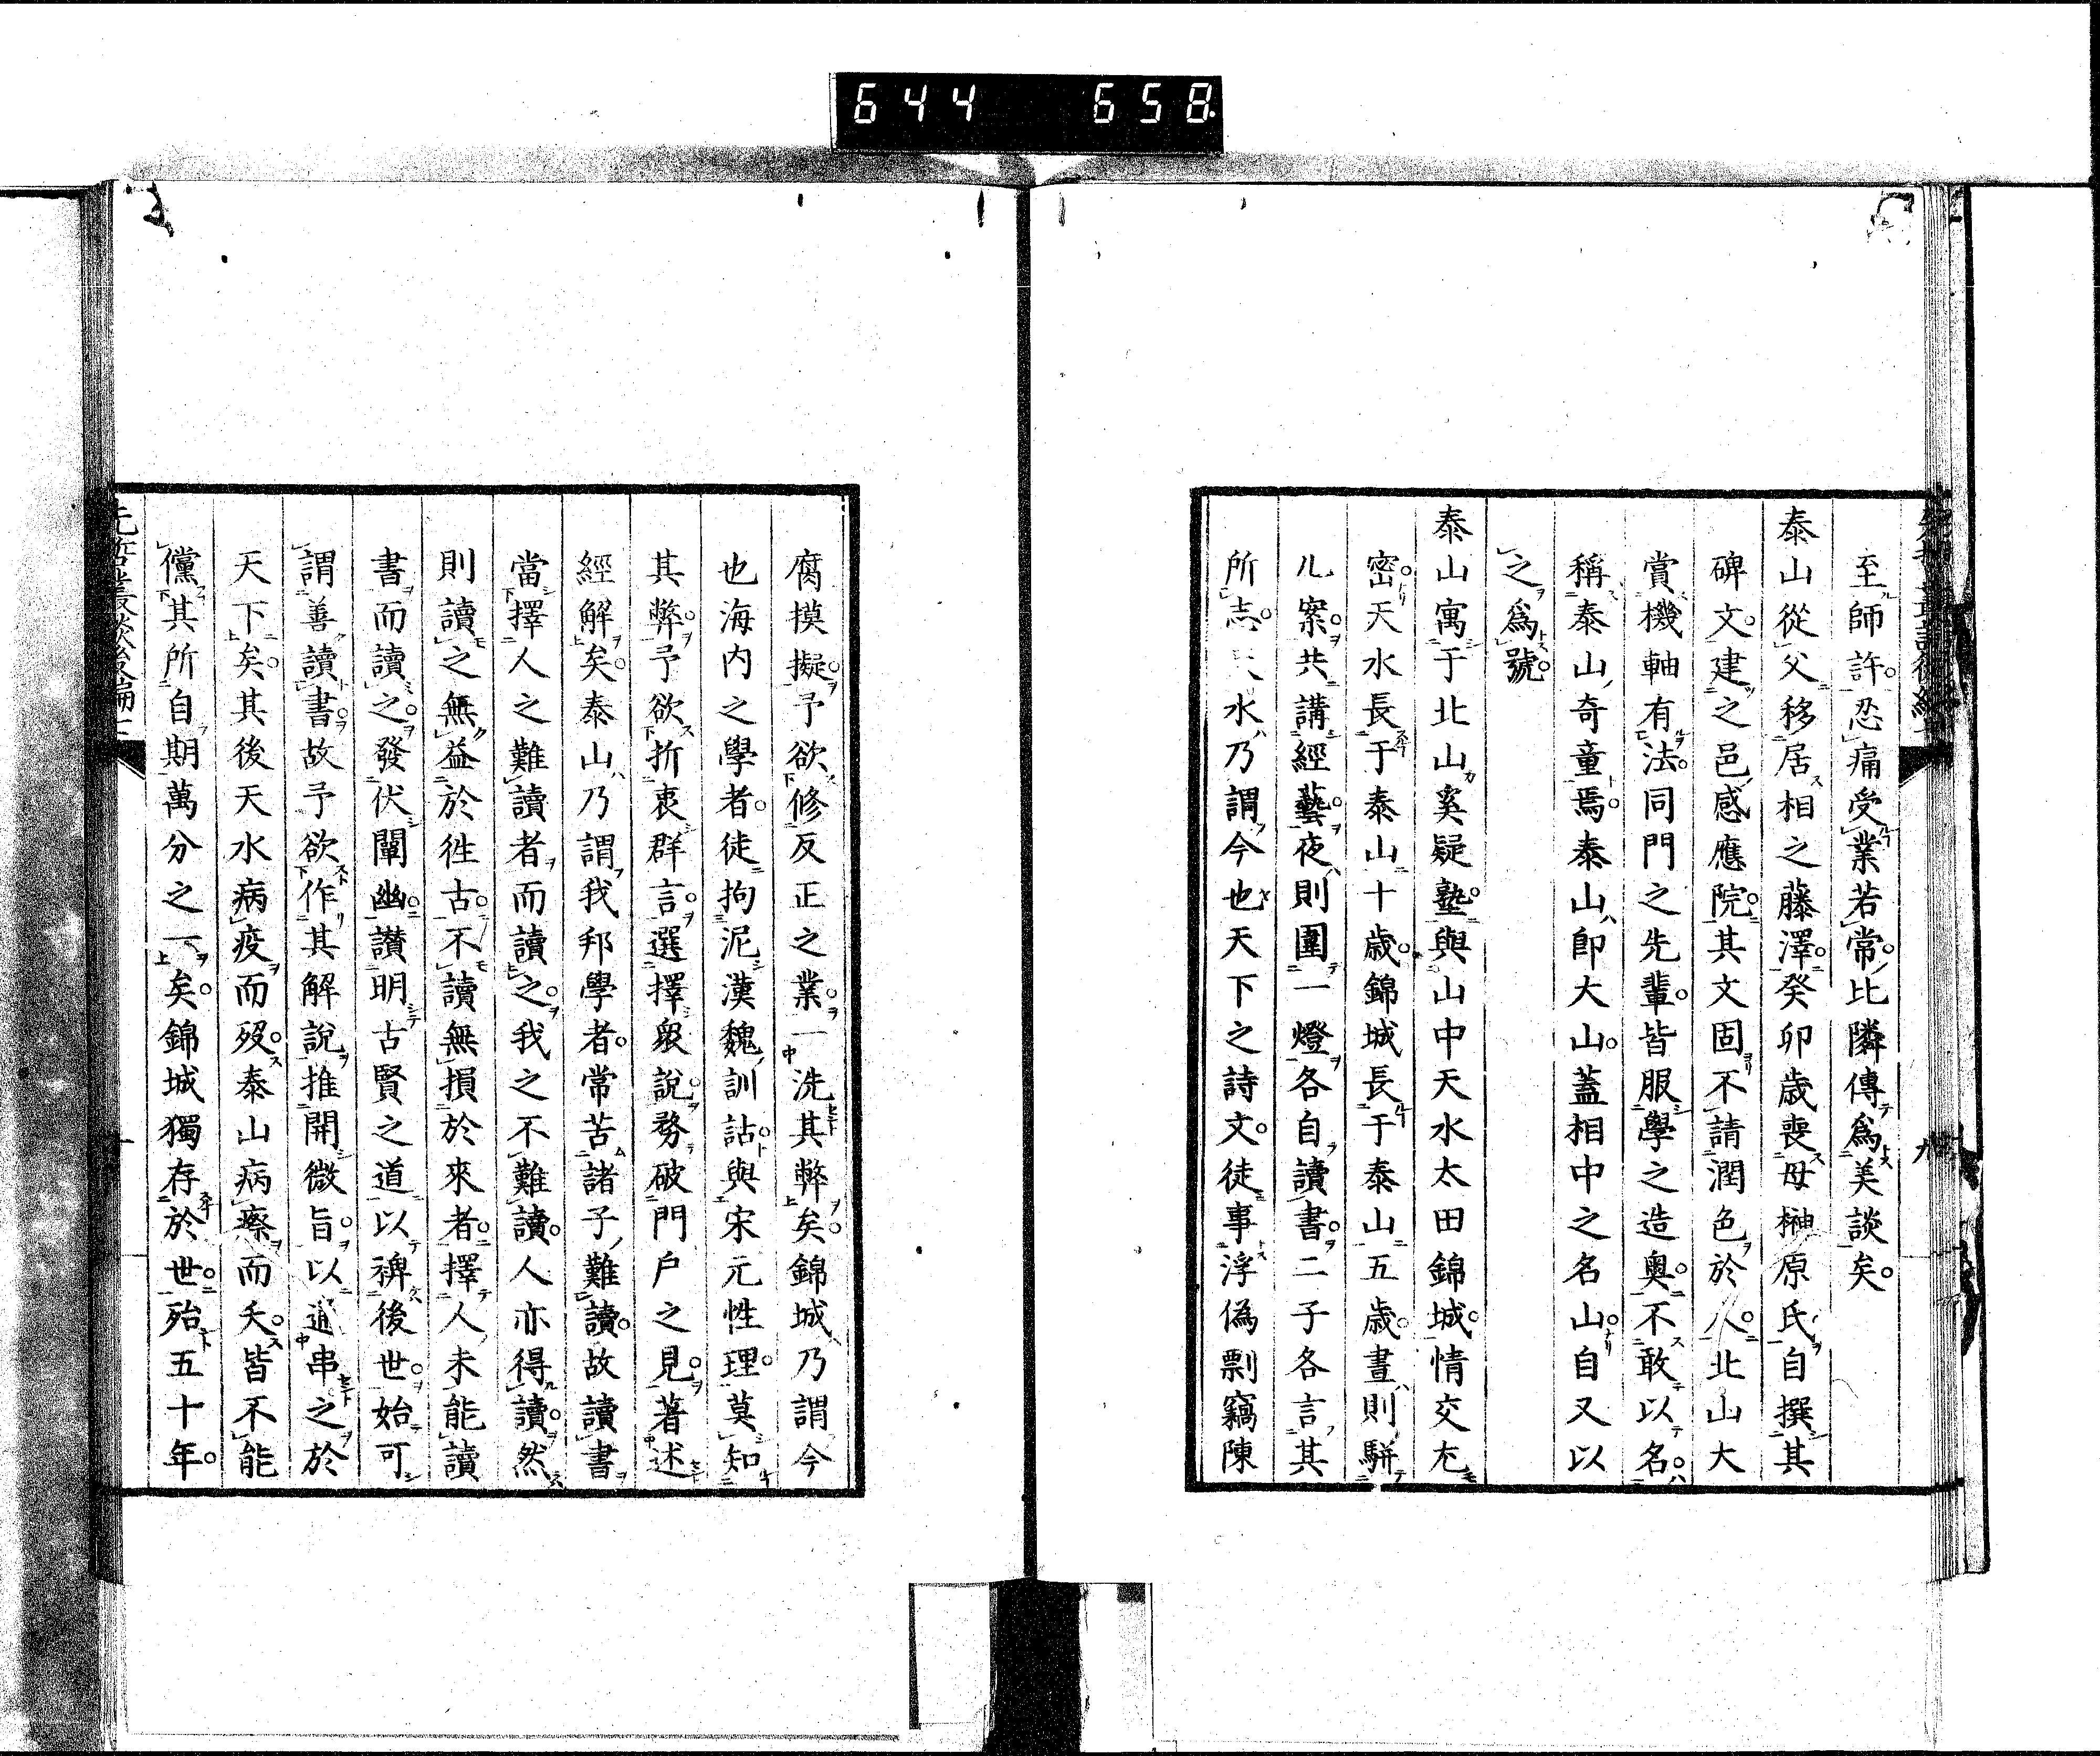 644 658
至師許忍痛受業若常比隣傳爲美談矣
泰山從父移居相之藤澤癸卯歲喪母榊原氏自撰其
碑文建之邑感應院其文固不請潤色於人北山大
賞機軸有法同門之先輩皆服學之造奧不敢以名
稱泰山奇童焉泰山卽大山山蓋相中之名山自又以
之爲號
泰山寓于北山奚疑塾與山中天水太田錦城情交尤
密天水長于泰山十歲錦城長于泰山五歲晝則駢
几案共講經藝夜則圍一燈各自讀書二子各言其
所志天水乃謂今也天下之詩文徒事浮僞剽竊陳
腐摸擬予欲修反正之業一洗其弊矣錦城乃謂今
也海内之學者徒拘泥漢魏訓詁與宋元性理莫知
其弊予欲折衷群言選擇衆說務破門戶之見著述
經解矣泰山乃謂我邦學者常苦諸子難讀故讀書
當擇人之難讀者而讀之我之不難讀人亦得讀然
則讀之無益於徃古不讀無損於來者擇人未能讀
書而讀之發伏闡幽讃明古賢之道以裨後世始可
謂善讀書故予欲作其解說推開微旨以通串之於
天下矣其後天水病疫而歿泰山病瘵而夭皆不能
儻其所自期萬分之一矣錦城獨存於世殆五十年